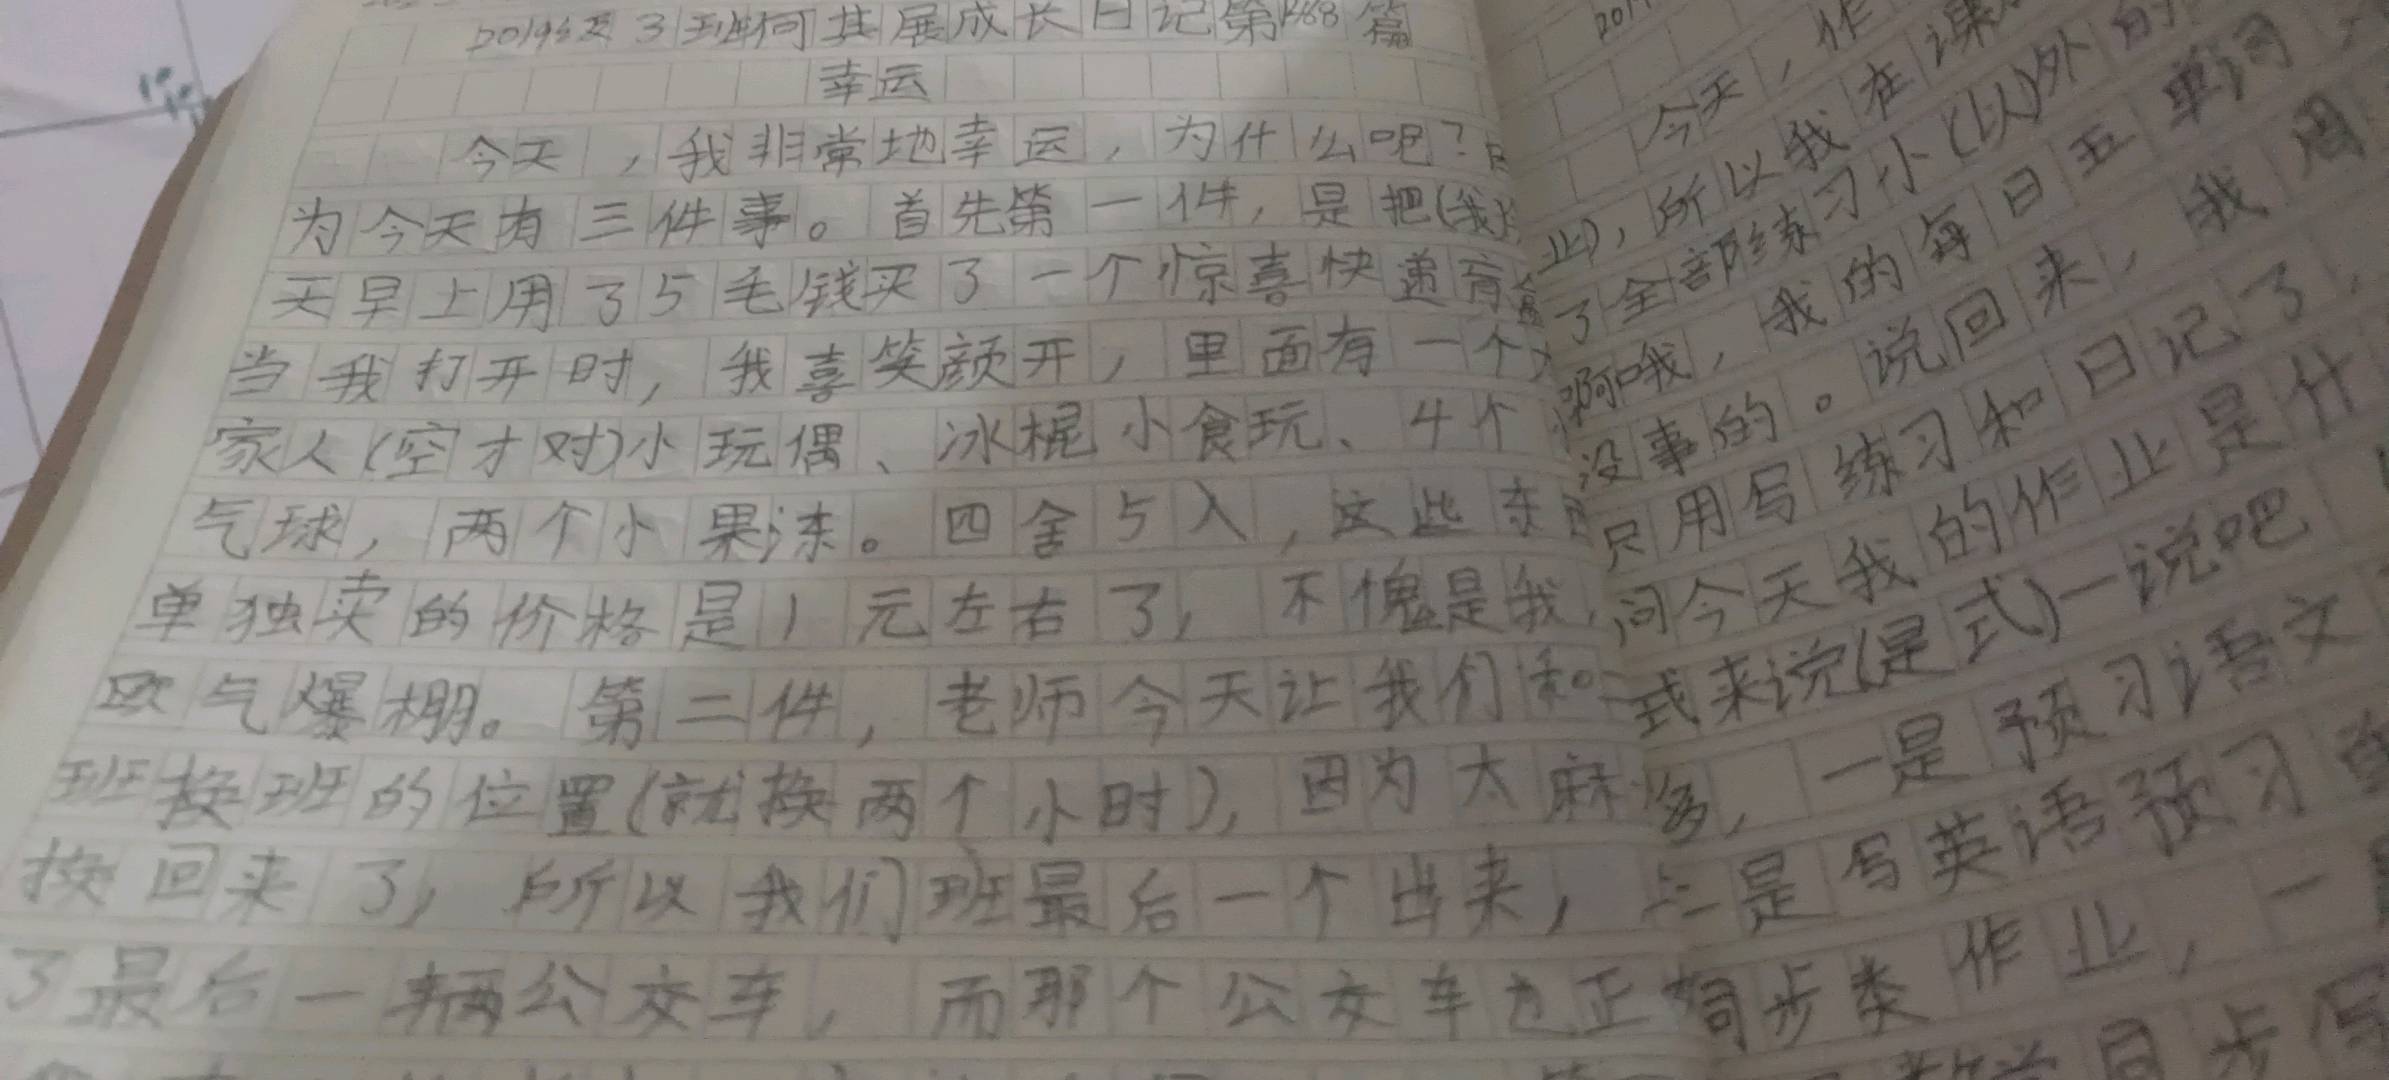 2019级3班何其展成长日记第468篇
幸运
今天，我非常地幸运，为什么呢？
为今天有三件事。首先第一件，是把(我
天早上用了5毛钱买了一个惊喜快递盲盒
当我打开时，我喜笑颜开，里面有一个
家人(空才对)小玩偶、冰棍小食玩、4个
气球，两个小果冻。四舍5入，这些东
单独卖的价格是1元左右了，不愧是我，
欧气爆棚。第二件，老师今天让我们和
班换班的位置(就换两个小时)，因为太麻
换回来了，所以我们班最后一个出来，
了最后一辆公交车，而那个公交车也正
今天，作
业)，所以我在课
了全部练习小(以)外的
啊哦，我的每日五单词
没事的。说回来，我周
只用写练习和日记了，
问今天我的作业是什
式来说(是式)一说吧
多，一是预习语文
二是写英语预习单
同步类作业，一
同步写